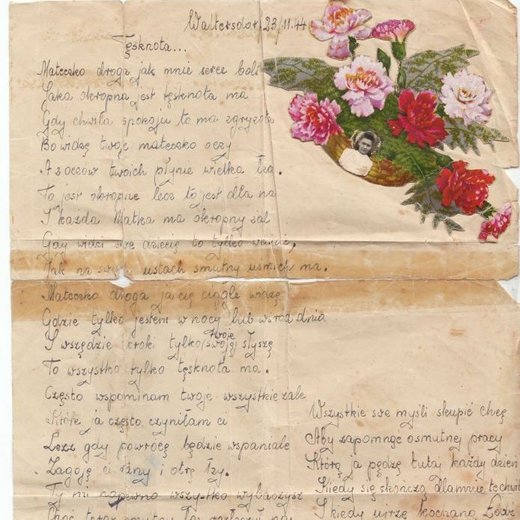 Waltersdorf 23/11.44
Tęsknota...
Mateczko droga jak mnie serce boli
Jaka okropna jest tęsknota ma
Gdy chwila spokoju to ma zgryzota
Bo widzę twoje mateczko oczy
A z oczów twoich płynie wielka łza.
To jest okropne lecz to jest dla na
I każda Matka ma okropny żal
Gdy widzi swe dziecię to tylko
Jak na swych ustach smutny uśmich ma.
Mateczko droga ja cię ciągle widzę
Gdzie tylko jestem w nocy lub wśród dnia
I wszędzie kroki tylko twoje słyszę
To wszystko tylko tęsknota ma.
Często wspominam twoje wszystkie żale
Które ja często czyniłam ci
Lecz gdy powrócę będzie wspaniale
Zagoję ci rany otrę łzy.
Ty mi napewno wszystko wybaczysz
Wszystkie swe myśli skupić chcę
Aby zapomnąc o smutnej pracy
Którą ja pędzę tutaj każdy dzień
Kiedy się skończą dla mnie te
Kiedy ujrzę kochaną Łódź